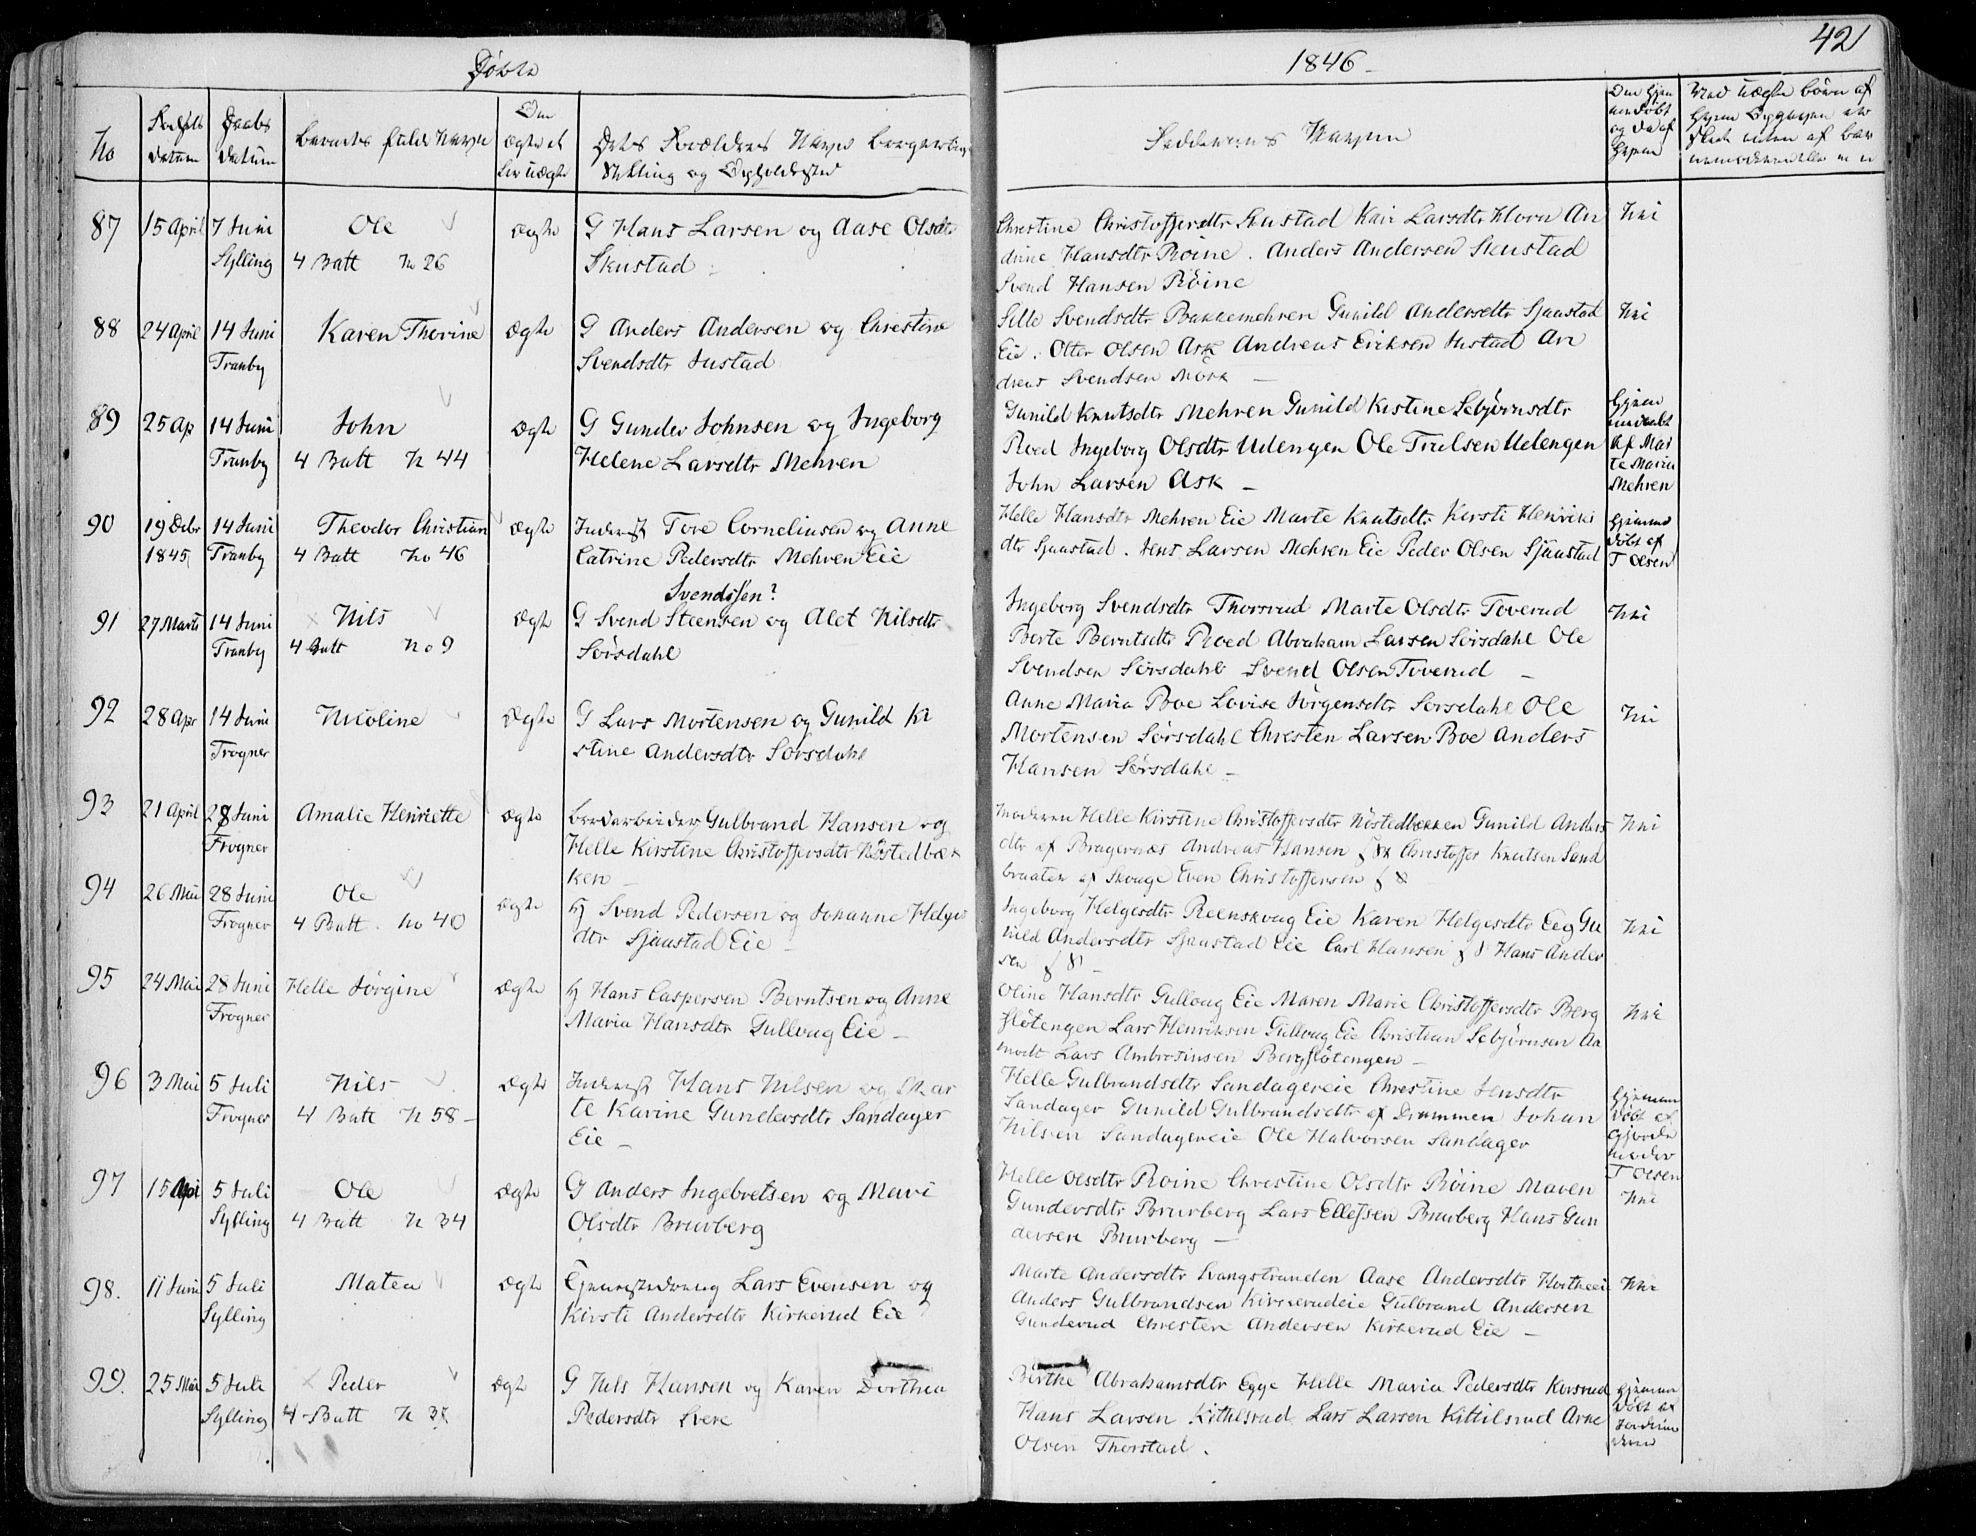 Døbte
1846
42
No
Fødsels Datum
Daabs Datum
Barnets fulde Navn
Om ægte el ler uægte
Dets Forældres Navne Borgerlige
Stilling og Opholdssted
Faddernes Navne
87 15 April 7 Juni Ole ægte G Hans Larsen og Aase Olsdtr
Sylling 4 Batt No 26 Skustad
Christine Christoffersdtr Skustad Kari Larsdtr Horn An Nei
drine Hansdtr Röine. Anders Andersen Skustad
Svend Hansen Röine
88 24 April 14 Juni Karen Thorine ægte G Anders Andersen og Christine
Tranby Svendsdtr Justad
Sille Svendsdtr Bakkemehren Gunild Andersdtr Sjaastad Nei
Eie. Otter Olsen Ask Andreas Eriksen Justad An
dreas Svendsen Mörk
89 25 Ap 14 Juni John ægte G Gunder Johnsen og Ingeborg
Tranby 4 Batt N 44 Helene Larsdtr Mehren
Gunild Knutsdtr Mehren Gunild Kistine Sebjörnsdtr Hjem
Roed Ingeborg Olsdtr Udengen Ole Trulsen Udengen
John Larsen Ask
af Mar
te Maria
Mehren
90 19 Debr 14 Juni Theodor Christian ægte Inderst Tore Corneliusen og Anne
1845 Tranby 4 Batt No 46 Catrine Pedersdtr Mehren Eie
Helle Hansdtr Mehren Eie Marte Knutsdtr Kersti Henriks Hjemme
dtr Sjaastad. Jens Larsen Mehren Eie Peder Olsen Sjaastad döbt af
T Olsen
Svendsen?
91 27 Marts 14 Juni Nils ægte G Svend Steensen og Alet Nilsdtr
Tranby 4 Batt No 9 Sörsdahl
Ingeborg Svendsdtr Thorsrud Marte Olsdtr Toverud Nei
Berte Berntsdtr Roed Abraham Larsen Sörsdahl Ole
Svendsen Sörsdahl Svend Olsen Toverud
92 28 Apr 14 Juni Nicoline ægte G Lars Mortensen og Gunild Ki
Frogner stine Andersdtr Sörsdahl
Anne Maria Boe Lovise Jörgensdtr Sörsdahl Ole Nei
Mortensen Sörsdahl Christen Larsen Boe Anders
Hansen Sörsdahl
93 21 April 28 Juni Amalie Henriette ægte Gulbrand Hansen og
Frogner Helle Kirstine Christoffersdtr Nöstedbæk
ken
Moderen Helle Kirstine Christoffersdtr Nöstedbækken Gunild Anders Nei
dtr af Bragernæs Andreas Hansen Christoffer Knutsen Sand
braaten af Skouge Even Christoffersen
94 26 Mai 28 Juni Ole ægte Hj Svend Pedersen og Johanne Helges
Frogner 4 Batt. No 40 dtr Sjaastad Eie
Ingeborg Helgesdtr Reenskoug Eie Karen Helgesdtr Eeg Gu Nei
nild Andersdtr Sjaastad Eie Carl Hansen Hans Ander
sen
95 24 Mai 28 Juni Helle Jörgine ægte Hj Hans Caspersen Berntsen og Anne
Frogner Maria Hansdtr Gulloug Eie
Oline Hansdtr Gulloug Eie Maren Marie Christoffersdtr Berg Nei
flötengen Lars Henriksen Gulloug Eie Christian Sebjörnsen Aa
modt Lars Ambrosiusen Bergflötengen
96 3 Mai 5 Juli Nils ægte Inderst Hans Nilsen og Mar
Frogner 4 Batt N 58 te Karine Gundersdtr Sandager
Eie
Helle Gulbrandsdtr Sandagereie Christine Jensdtr Hjemme
Sandager Gunild Gulbrandsdtr af Drammen Johan döbt af
Nilsen Sandagereie Ole Halvorsen Sandager
T Olsen
97 15 Apr 5 Juli Ole ægte G Anders Ingebretsen og Mari
Sylling 4 Batt N 34 Olsdtr Bruberg
Helle Olsdtr Röine Christine Olsdtr Röine Maren Nei
Gundersdtr Bruberg Lars Ellefsen Bruberg Hans Gun
dersen Bruberg
98. 11 Juni 5 Juli Matea ægte Lars Evensen og
Sylling Kirsti Andersdtr Kirkerud Eie
Marte Andersdtr Svangstranden Aase Andersdtr Nei
Anders Gulbrandsen Kirkerudeie Gulbrand Andersen
Gunderud Christen Andersen Kirkerud Eie
99. 25 Mai 5 Juli Peder ægte G Nils Hansen og Karen Dorthea
Sylling 4 Batt N Pedersdtr Svere
Birthe Abrahamsdtr Egge Helle Maria Pedersdtr Korsrud Hjemme
Hans Larsen Kittilsrud Lars Larsen Kittilsrud Arne döbt af
Olsen Thorstad.